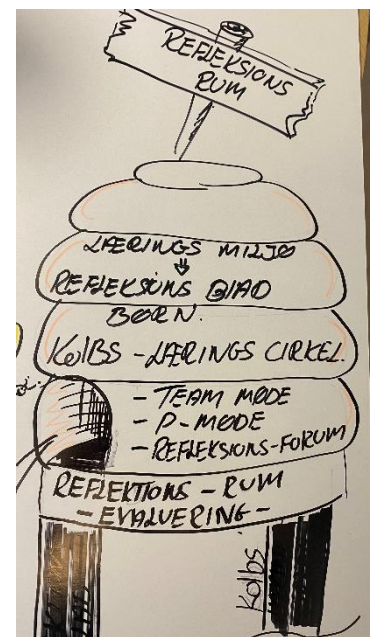 REFLEKSIONS
RUM
LÆRINGS MILJØ
⇓
REFLEKSIONS BLAD
BØRN.
KOLBS - LÆRINGS CIRKEL.
- TEAM MØDE
- P-MØDE
- REFLEKSIONS-FORUM
REFLEKTIONS - RUM
- EVALUERING -
Kolbs